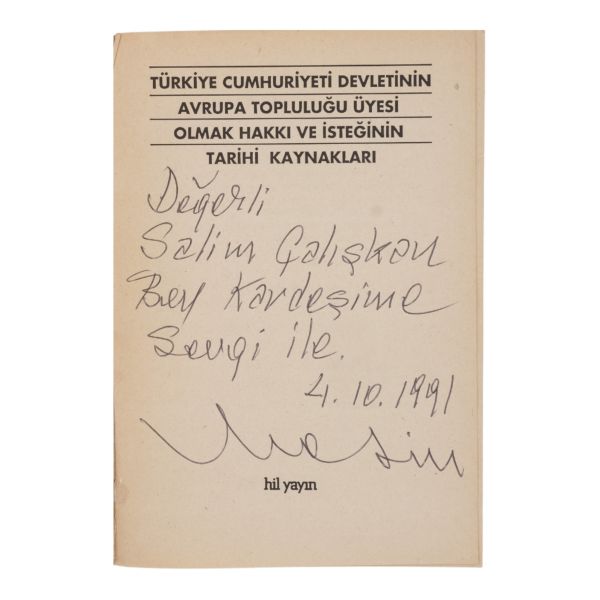 TÜRKİYE CUMHURİYETİ DEVLETİNİN
AVRUPA TOPLULUĞU ÜYESİ
OLMAK HAKKI VE İSTEĞİNİN
TARİHİ KAYNAKLARI
Değerli
Salim Çalışkan
Bey Kardeşime
Sevgi ile.
4.10.1991
hil yayın